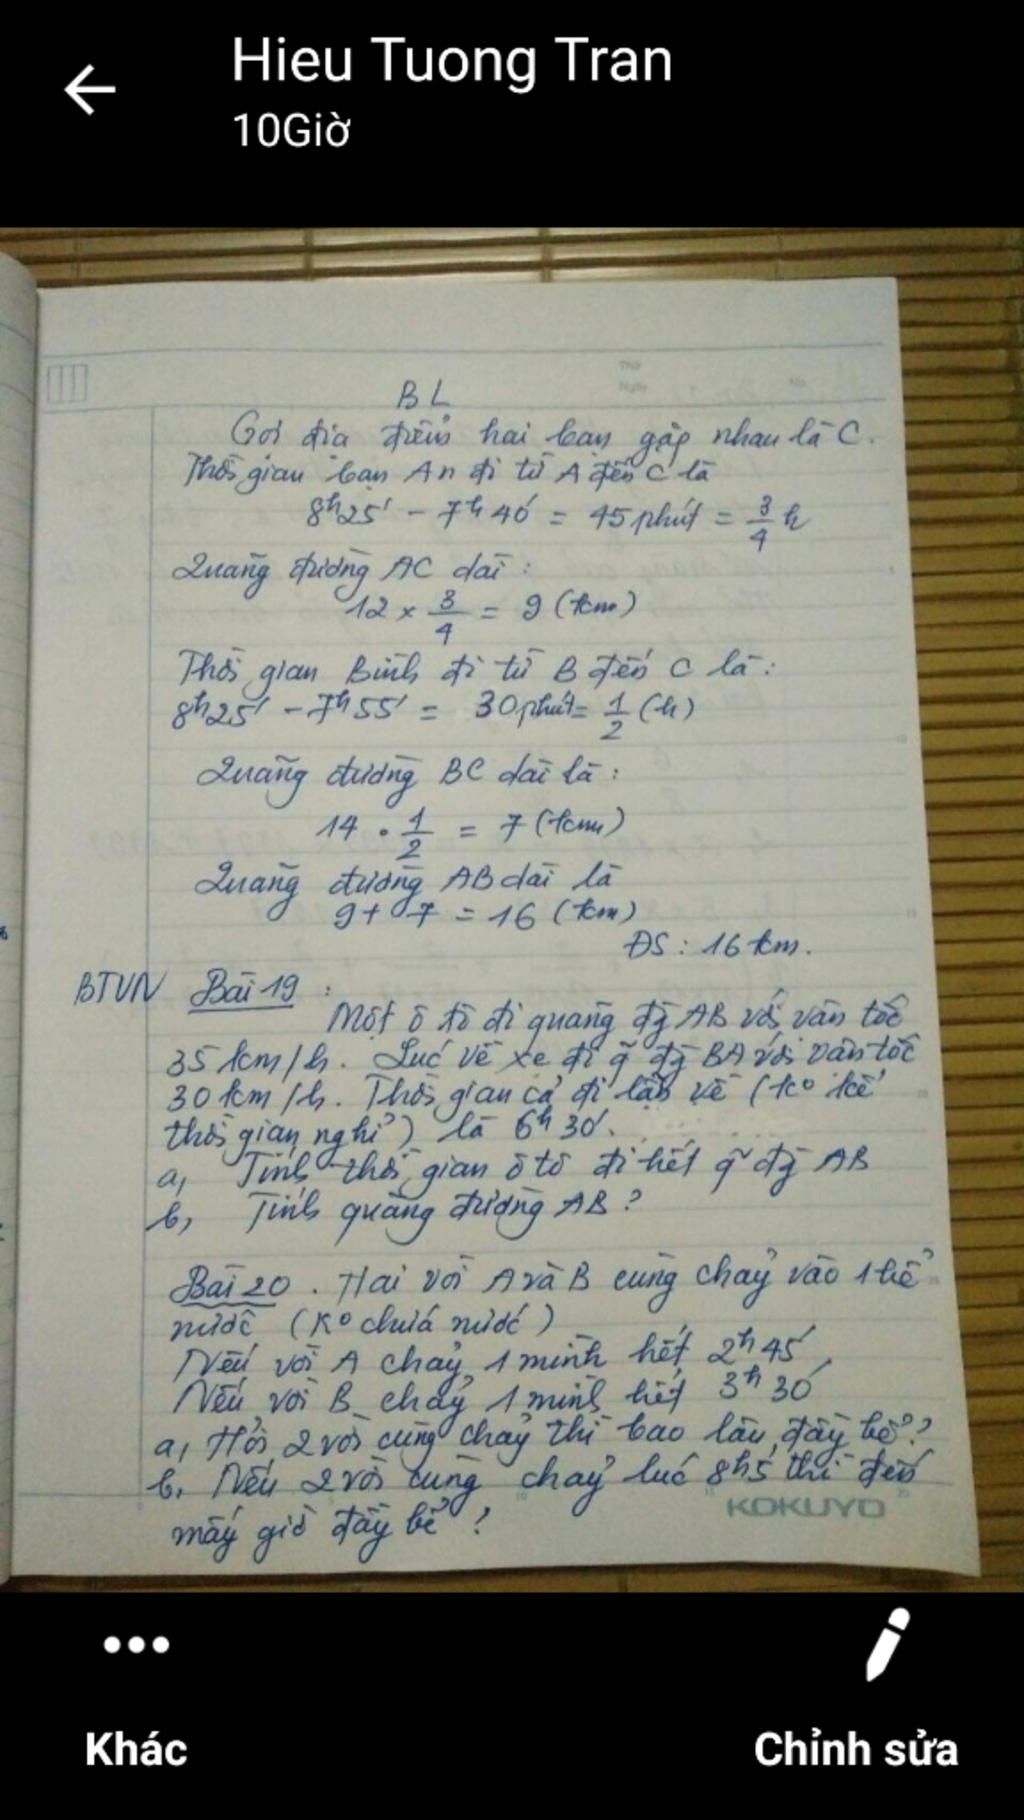 Hieu Tuong Tran
10Giờ
Thứ
Ngày
No.
BL
Gọi địa điểm hai bạn gặp nhau là C.
Thời gian bạn An đi từ A đến C là
8h25' - 7h40' = 45 phút = 3/4 h
Quãng đường AC dài:
12 × 3/4 = 9 (km)
Thời gian Bình đi từ B đến C là:
8h25' - 7h55' = 30 phút = 1/2 (h)
Quãng đường BC dài là:
14 . 1/2 = 7 (km)
Quãng đường AB dài là
9 + 7 = 16 (km)
ĐS: 16 km.
BTVN Bài 19:
Một ô tô đi quãng đg AB với vận tốc
35 km/h. Lúc về xe đi q̃ đg BA với vận tốc
30 km/h. Thời gian cả đi lẫn về (ko kể
thời gian nghỉ) là 6h30'.
a, Tính thời gian ô tô đi hết q̃ đg AB
b, Tính quãng đường AB?
Bài 20. Hai vòi A và B cùng chảy vào 1 bể
nước (Ko chứa nước)
Nếu vòi A chảy 1 mình hết 2h45'
Nếu vòi B chảy 1 mình hết 3h30'
a, Hỏi 2 vòi cùng chảy thì bao lâu đầy bể?
b, Nếu 2 vòi cùng chảy lúc 8h5' thì đến
mấy giờ đầy bể?
KOKUYO
Khác
Chỉnh sửa